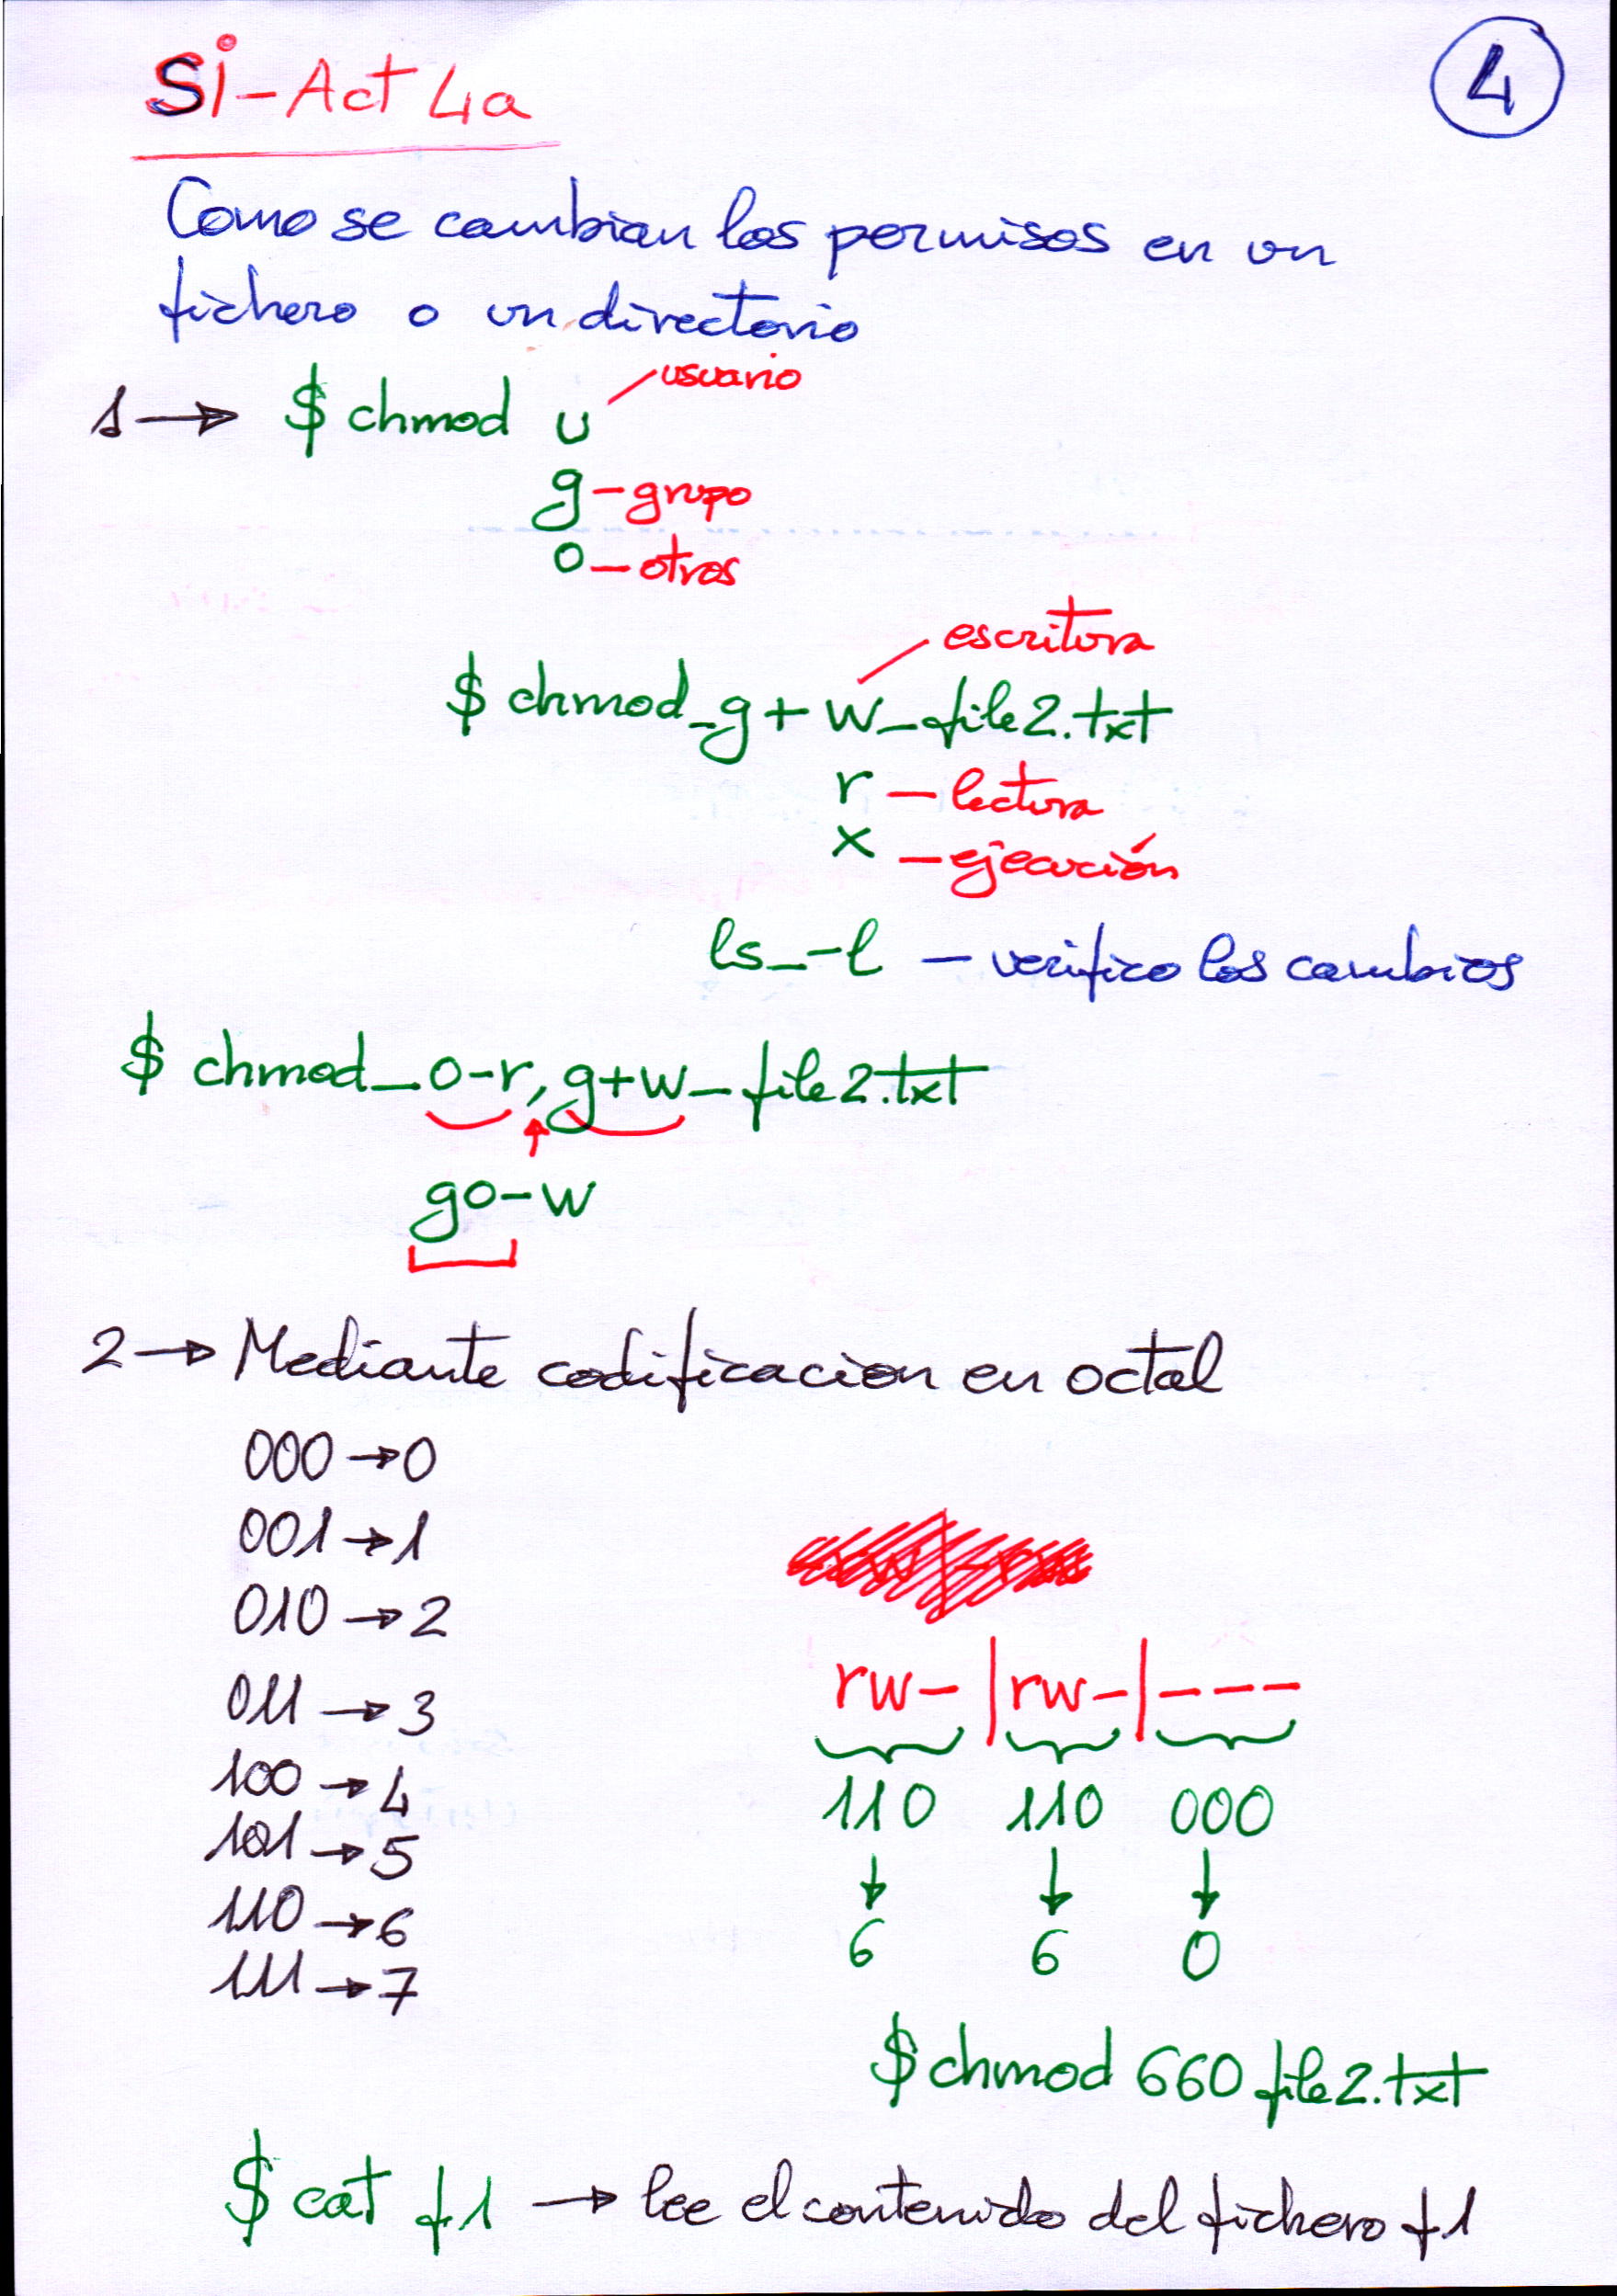 Si-Act 4a
4
Como se cambian los permisos en un
fichero o un directorio
1→ $ chmod u usuario
g-grupo
o-otros
escritura
$ chmod_g+w_file2.txt
r - lectura
x - ejecución
ls_-l - verifico los cambios
$ chmod_o-r,g+w_file2.txt
go-w
2→ Mediante codificacion en octal
000→0
001→1
010→2
011→3
100→4
101→5
110→6
111→7
rw-|rw-|---
110 110 000
6 6 0
$ chmod 660 file2.txt
$ cat f1 → lee el contenido del fichero f1